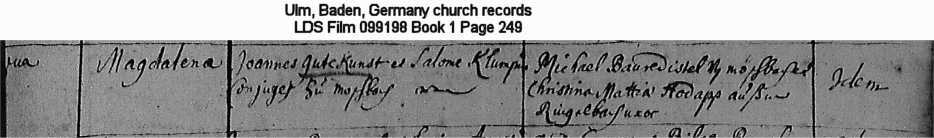 Ulm, Baden, Germany church records
LDS Film 099198 Book 1 Page 249
Magdalena
Joannes Gutekunst et Salome Klumpp
Conjuges zu Mosbach
Michael Bauredissel
Christina Hodapp
Ringelbach uxor
Idem